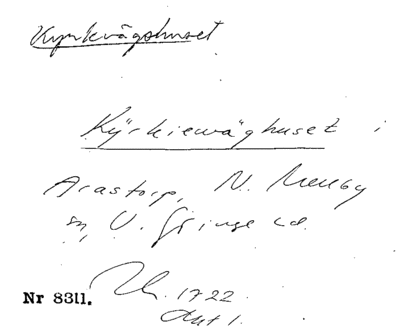 Kyrkvägshuset
Kyrkiewäghuset i
Arastorp, N. Mellby
sn, V. Göinge hd.
Nr 8311. 1722
Akt 1.